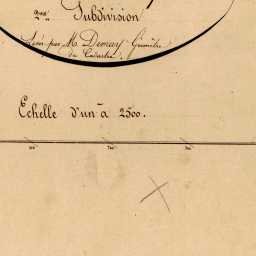 2me Subdivision
Levé par M. Demary Géomètre
du Cadastre.
Echelle d'un à 2500.